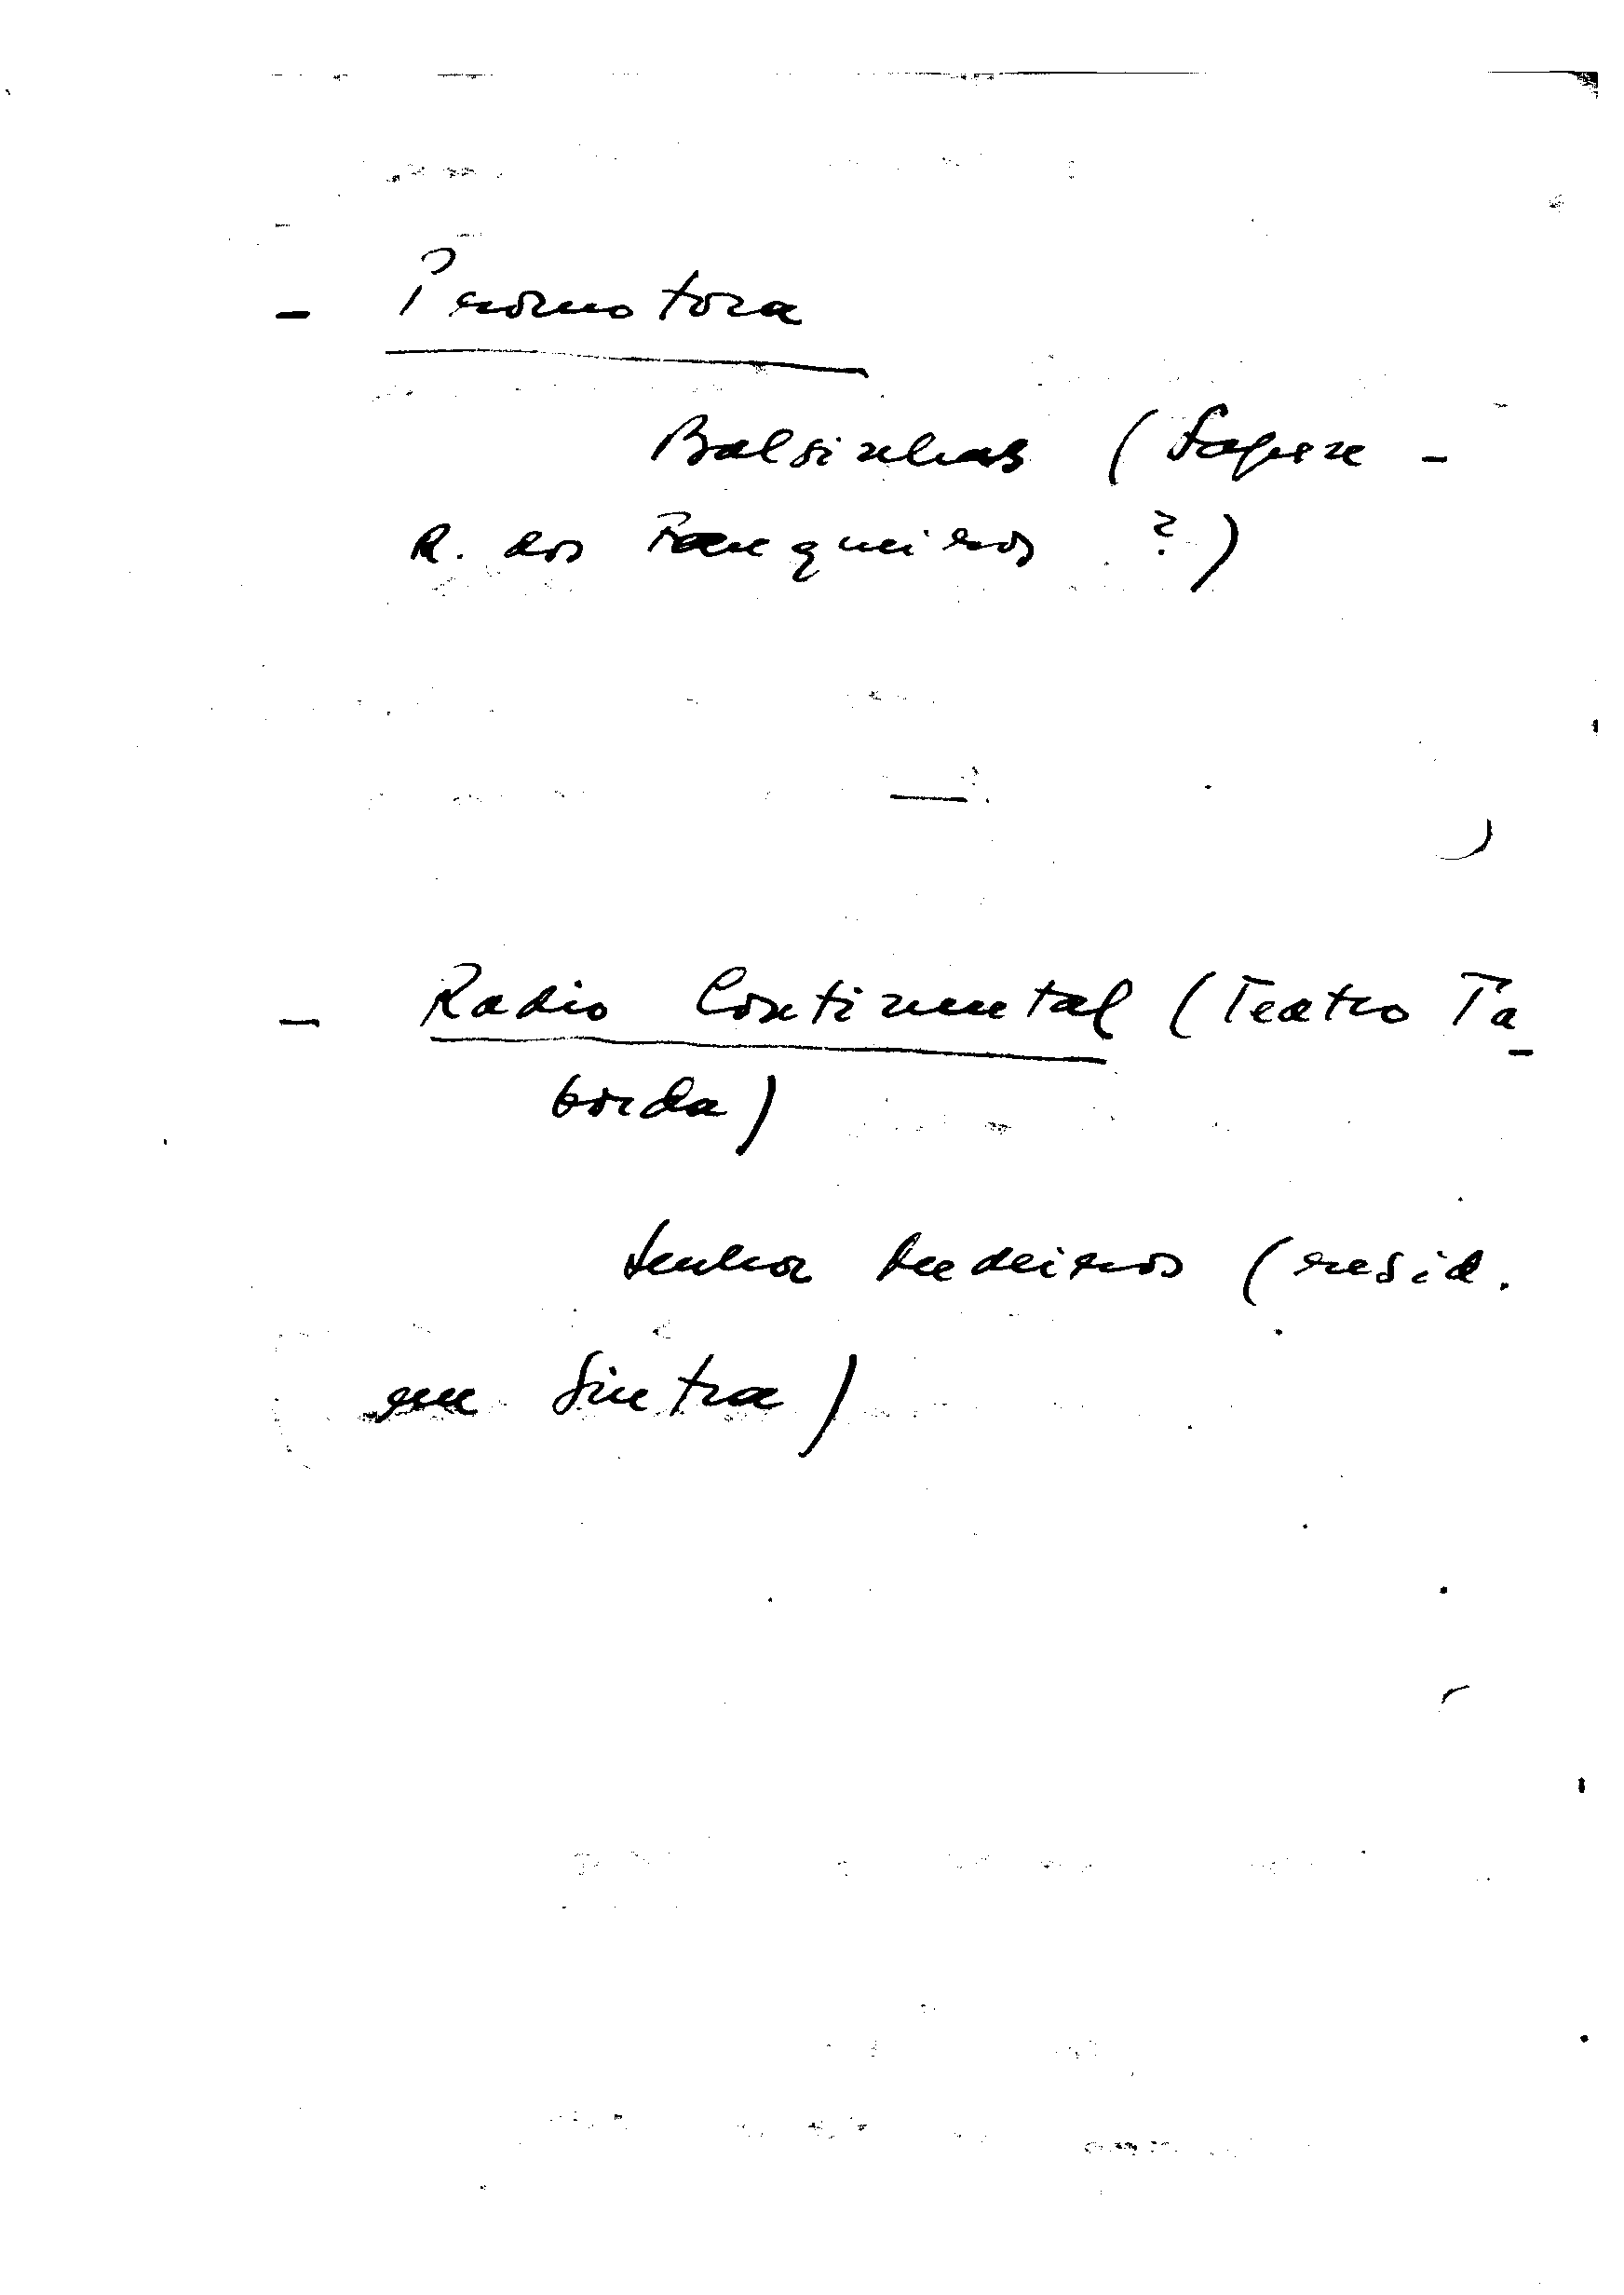 - Promotora
Balsinhas (Sapex -
R. dos Fanqueiros ?)
- Radio Continental (Teatro Ta_
borda)
Senhor Medeiros (resid.
em Sintra)